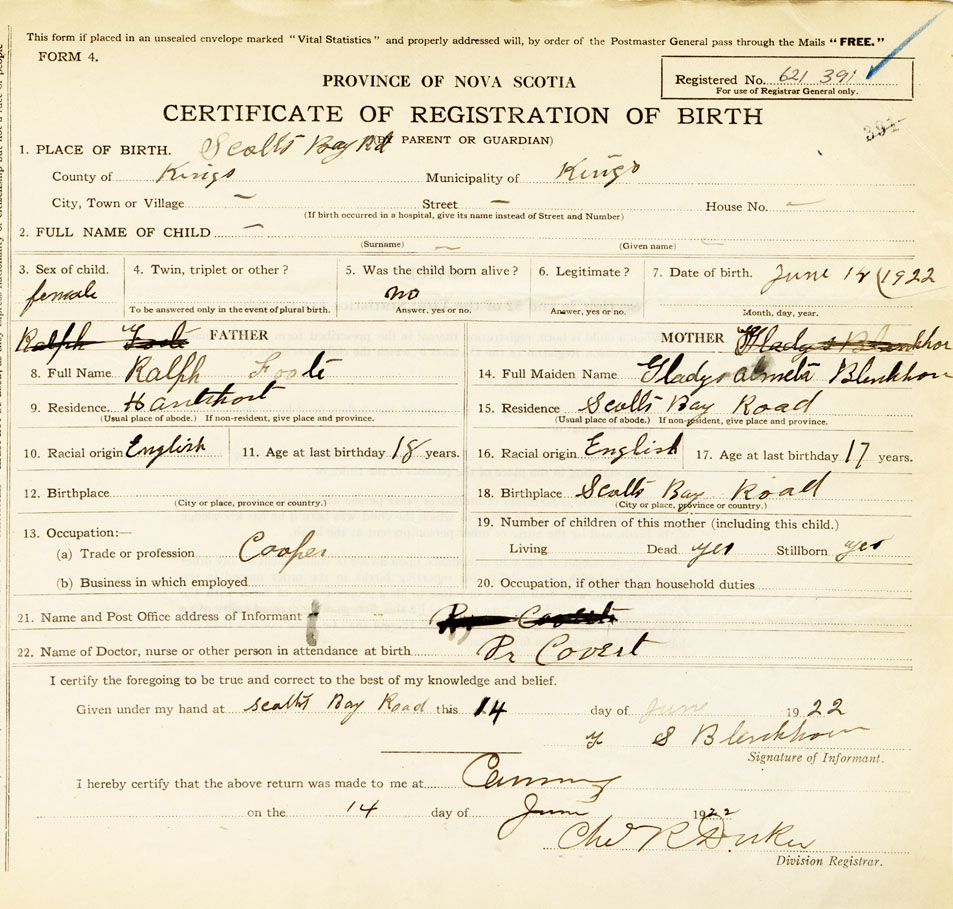 This form if placed in an unsealed envelope marked "Vital Statistics" and properly addressed will, by order of the Postmaster General pass through the Mails "FREE."
FORM 4.
PROVINCE OF NOVA SCOTIA
Registered No. 621 391
For use of Registrar General only.
CERTIFICATE OF REGISTRATION OF BIRTH
391
PARENT OR GUARDIAN)
1. PLACE OF BIRTH. Scotts Bay Rd
County of Kings Municipality of Kings
City, Town or Village — Street — House No. —
(If birth occurred in a hospital, give its name instead of Street and Number)
2. FULL NAME OF CHILD —
(Surname) — (Given name) —
3. Sex of child. 4. Twin, triplet or other? 5. Was the child born alive? 6. Legitimate? 7. Date of birth. June 1922
female no
To be answered only in the event of plural birth. Answer, yes or no. Answer, yes or no. Month, day, year.
Ralph Foote FATHER MOTHER Gladys Blenkhor
8. Full Name Ralph Foote 14. Full Maiden Name Gladys almeta Blenkhorn
9. Residence. Hantsport 15. Residence Scotts Bay Road
(Usual place of abode.) If non-resident, give place and province. (Usual place of abode.) If non-resident, give place and province.
10. Racial origin English 11. Age at last birthday 18 years. 16. Racial origin English 17. Age at last birthday 17 years.
12. Birthplace 18. Birthplace Scotts Bay Road
(City or place, province or country.) (City or place, province or country.)
13. Occupation:— 19. Number of children of this mother (including this child.)
(a) Trade or profession Cooper Living Dead yes Stillborn yes
(b) Business in which employed 20. Occupation, if other than household duties
21. Name and Post Office address of Informant Covert
22. Name of Doctor, nurse or other person in attendance at birth Dr Covert
I certify the foregoing to be true and correct to the best of my knowledge and belief.
Given under my hand at scotts Bay Road this 14 day of June 1922
S Blenkhorn
Signature of Informant.
I hereby certify that the above return was made to me at Canning
on the 14 day of June 1922
R
Division Registrar.